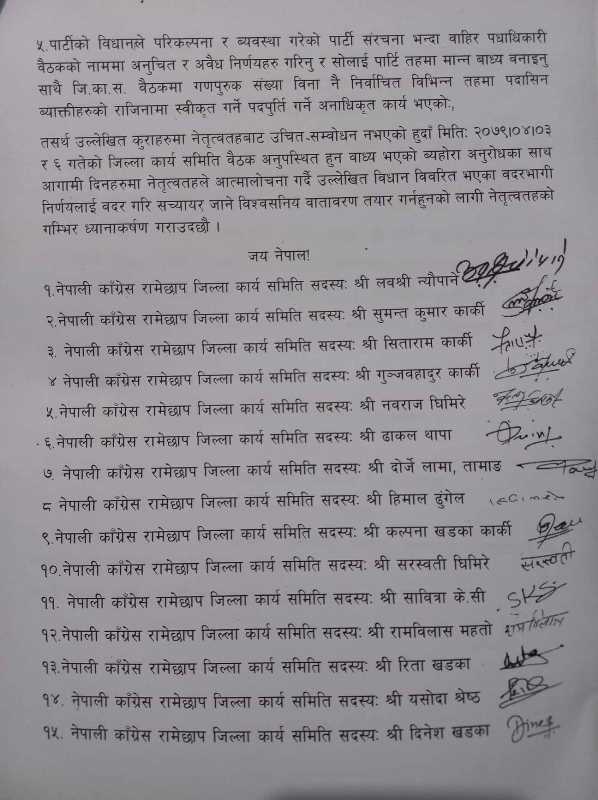 ५.पार्टीको विधानले परिकल्पना र ब्यवस्था गरेको पार्टी संरचना भन्दा वाहिर पधाधिकारी
वैठकको नाममा अनुचित र अवैध निर्णयहरु गरिनु र सोलाई पार्टि तहमा मान्न बाध्य वनाइनु
साथै जि.का.स. वैठकमा गणपुरक संख्या विना नै निर्वाचित विभिन्न तहमा पदासिन
ब्याक्तीहरुको राजिनामा स्वीकृत गर्ने पदपुर्ति गर्ने अनाधिकृत कार्य भएको:,
तसर्थ उल्लेखित कुराहरुमा नेतृत्वतहबाट उचित-सम्वोधन नभएको हुदाँ मिति: २०७९।०४।०३
र ६ गतेको जिल्ला कार्य समिति वैठक अनुपस्थित हुन वाध्य भएको ब्यहोरा अनुरोधका साथ
आगामी दिनहरुमा नेतृत्वतहले आत्मालोचना गर्दै उल्लेखित विधान विवरित भएका वदरभागी
निर्णयलाई वदर गरि सच्यायर जाने विश्वसनिय वातावरण तयार गर्नहुनको लागी नेतृत्वतहको
गम्भिर ध्यानाकर्षण गराउदछौ ।
जय नेपाल!
१.नेपाली काँग्रेस रामेछाप जिल्ला कार्य समिति सदस्य: श्री लवश्री न्यौपाने
२.नेपाली काँग्रेस रामेछाप जिल्ला कार्य समिति सदस्य: श्री सुमन्त कुमार कार्की
३. नेपाली काँग्रेस रामेछाप जिल्ला कार्य समिति सदस्य: श्री सिताराम कार्की
४ नेपाली काँग्रेस रामेछाप जिल्ला कार्य समिति सदस्य: श्री गुञ्जवहादुर कार्की
५ नेपाली काँग्रेस रामेछाप जिल्ला कार्य समिति सदस्य: श्री नवराज घिमिरे
६.नेपाली काँग्रेस रामेछाप जिल्ला कार्य समिति सदस्य: श्री ढाकल थापा
७. नेपाली काँग्रेस रामेछाप जिल्ला कार्य समिति सदस्य: श्री दोर्जे लामा, तामाङ
८ नेपाली काँग्रेस रामेछाप जिल्ला कार्य समिति सदस्य: श्री हिमाल ढुंगेल
९.नेपाली काँग्रेस रामेछाप जिल्ला कार्य समिति सदस्य: श्री कल्पना खडका कार्की
१०.नेपाली काँग्रेस रामेछाप जिल्ला कार्य समिति सदस्य: श्री सरस्वती घिमिरे सरस्वती
११. नेपाली काँग्रेस रामेछाप जिल्ला कार्य समिति सदस्य: श्री सावित्रा के.सी
१२.नेपाली काँग्रेस रामेछाप जिल्ला कार्य समिति सदस्य: श्री रामविलास महतो
१३.नेपाली काँग्रेस रामेछाप जिल्ला कार्य समिति सदस्य: श्री रिता खडका
१४. नेपाली काँग्रेस रामेछाप जिल्ला कार्य समिति सदस्य: श्री यसोदा श्रेष्ठ
१५. नेपाली काँग्रेस रामेछाप जिल्ला कार्य समिति सदस्य: श्री दिनेश खडका